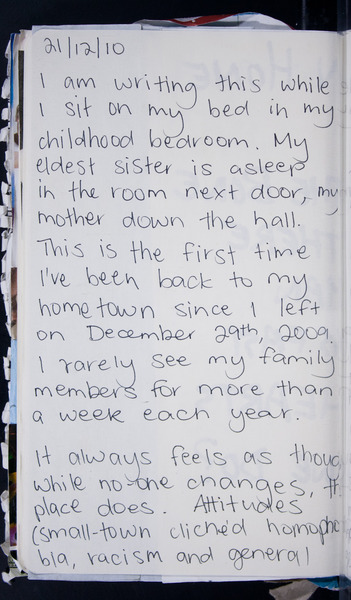 21/12/10
I am writing this while
I sit on my bed in my
childhood bedroom. My
eldest sister is asleep
in the room next door, my
mother down the hall.
This is the first time
I've been back to my
hometown since I left
on December 29th, 2009.
I rarely see my family
members for more than
a week each year.
It always feels as thoug
while no-one changes, th
place does. Attitudes
(small-town clichéd homopho
bia, racism and general